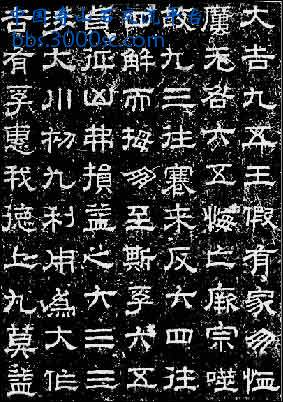 大吉九五王假有家勿恤
厲无咎六五悔亡厥宗噬
九三往蹇來反六四往
解而拇朋至斯孚六五
征凶弗損益之六三三
大川初九利用為大作
吉有孚惠我德上九莫益
bbs.3000xc.com